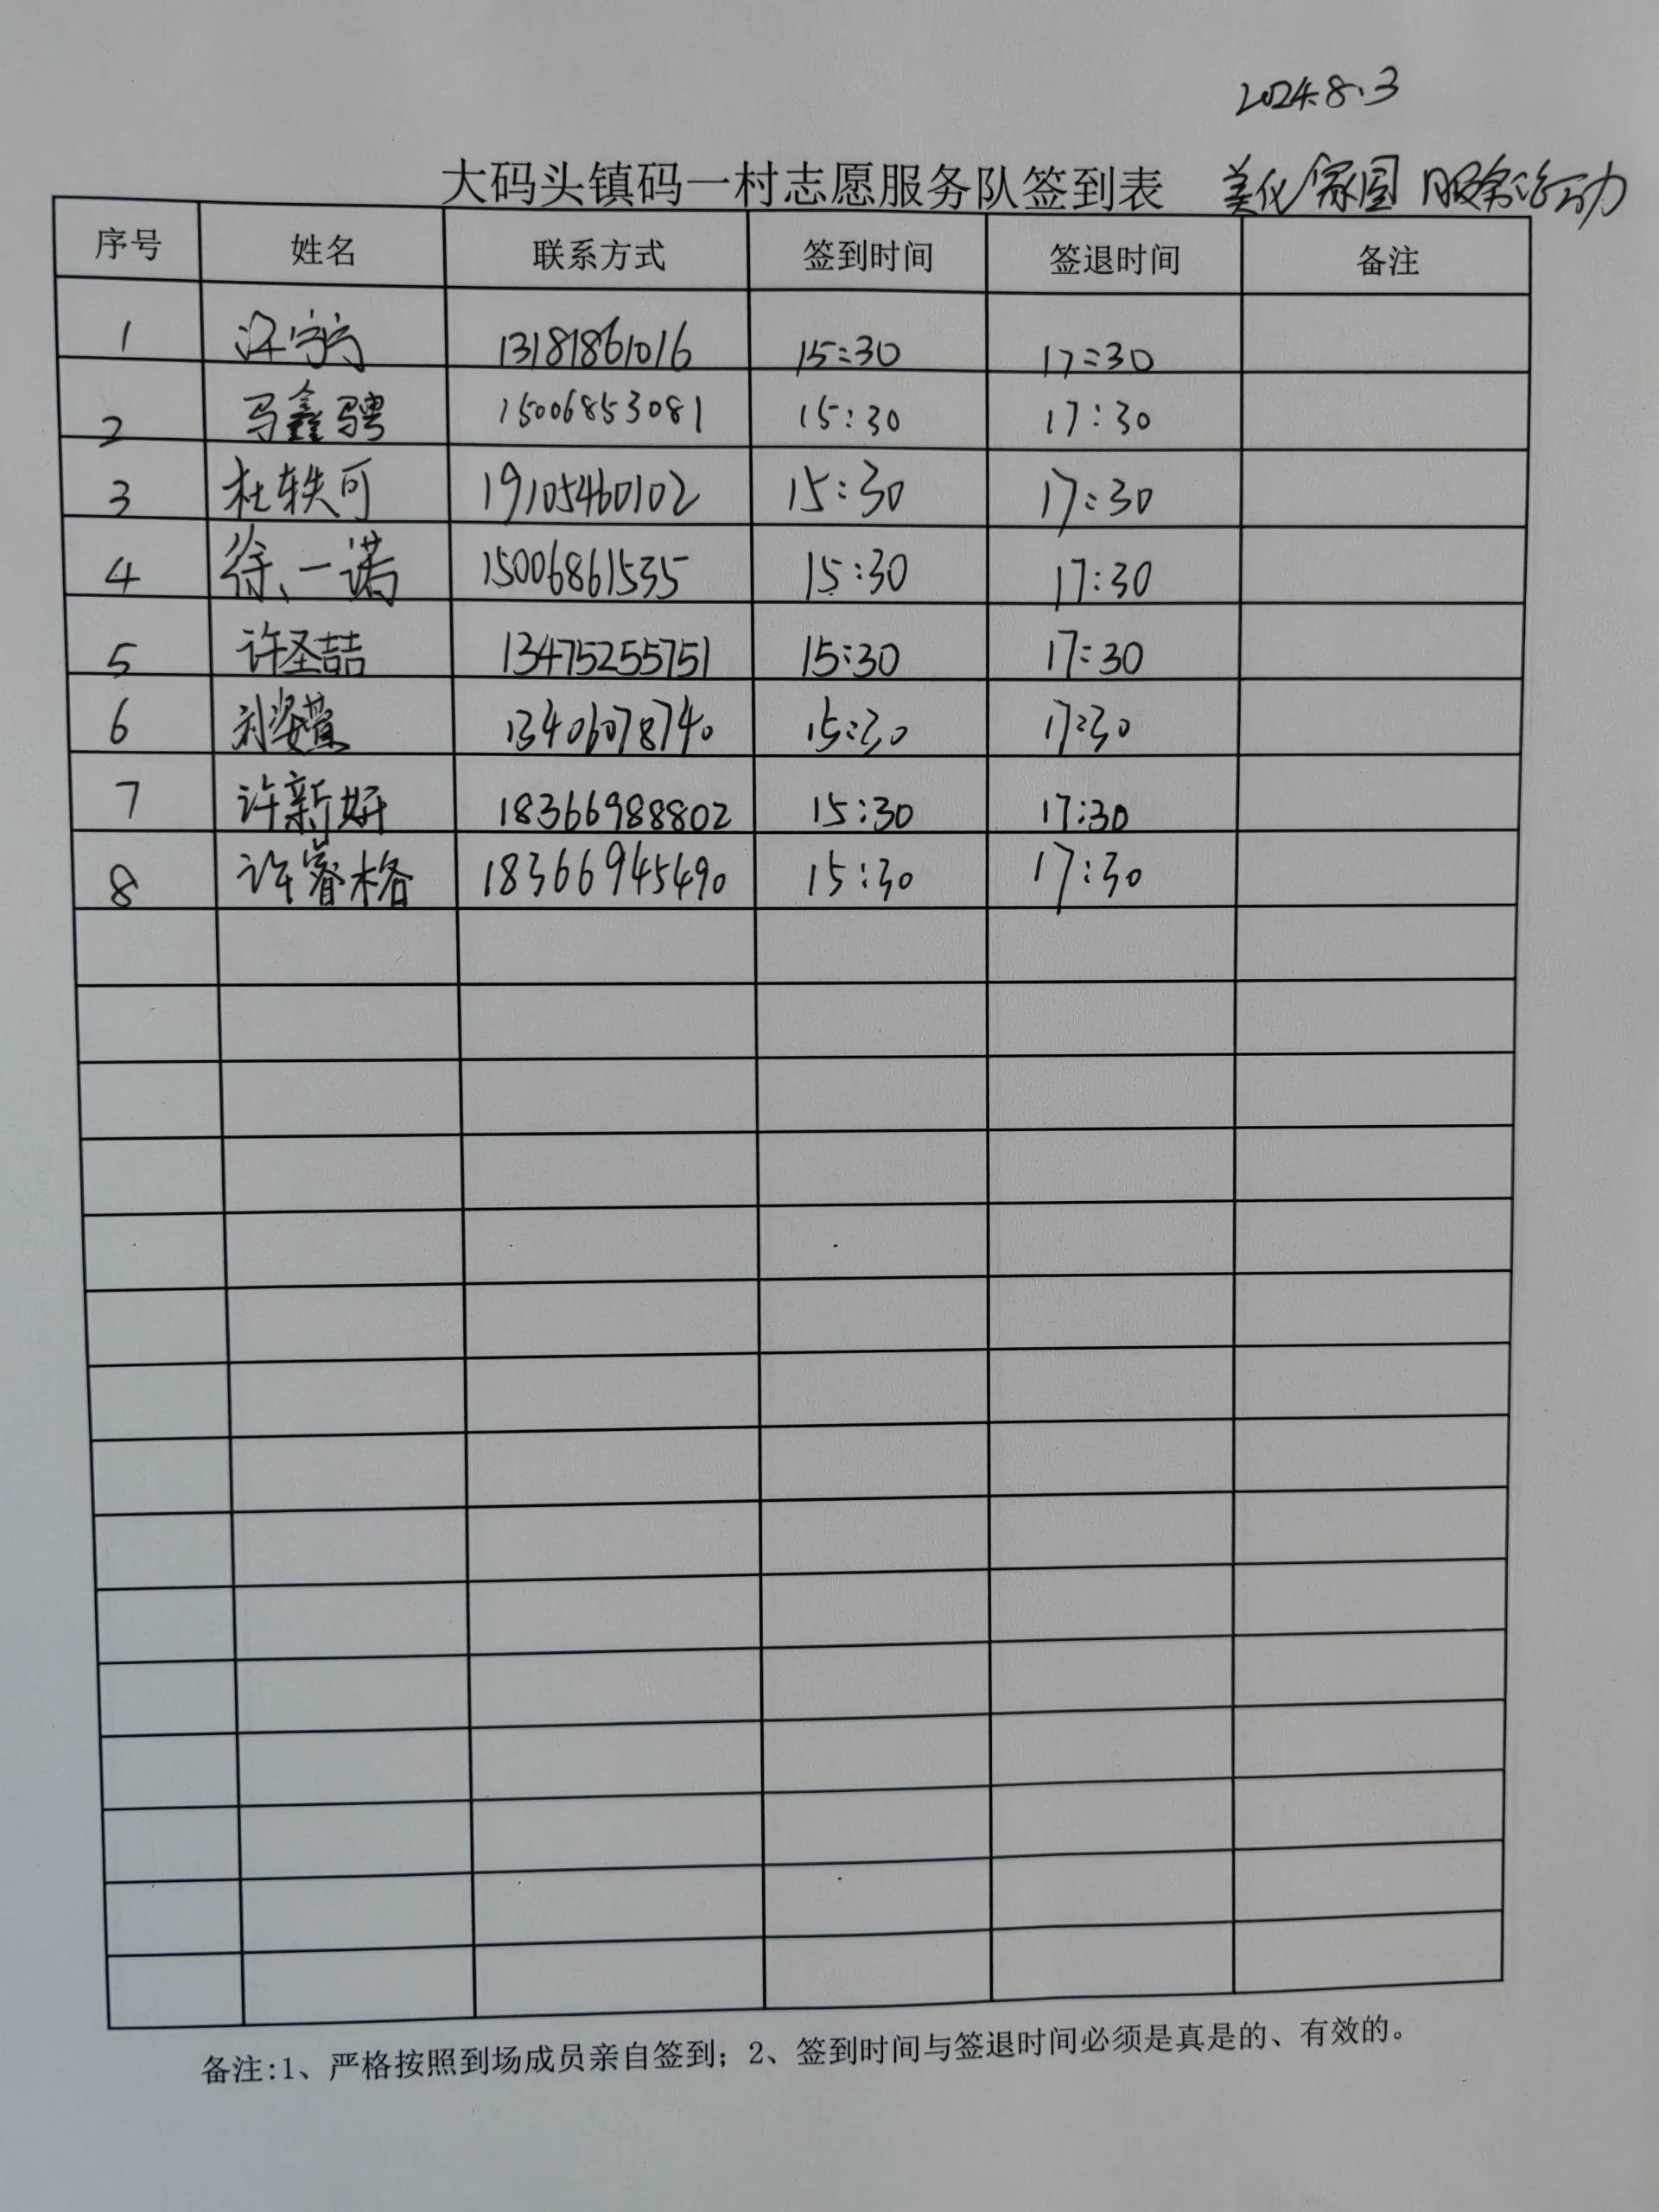 2024.8.3
大码头镇码一村志愿服务队签到表 美化家园 服务活动
序号 姓名 联系方式 签到时间 签退时间 备注
1 13181861016 15:30 17:30
2 马鑫骋 15006853081 15:30 17:30
3 杜轶可 19105460102 15:30 17:30
4 徐一诺 15006861535 15:30 17:30
5 许圣喆 13475255751 15:30 17:30
6 刘姿萱 13406078740 15:30 17:30
7 许新妍 18366988802 15:30 17:30
8 许睿格 18366945490 15:30 17:30
备注:1、严格按照到场成员亲自签到；2、签到时间与签退时间必须是真是的、有效的。